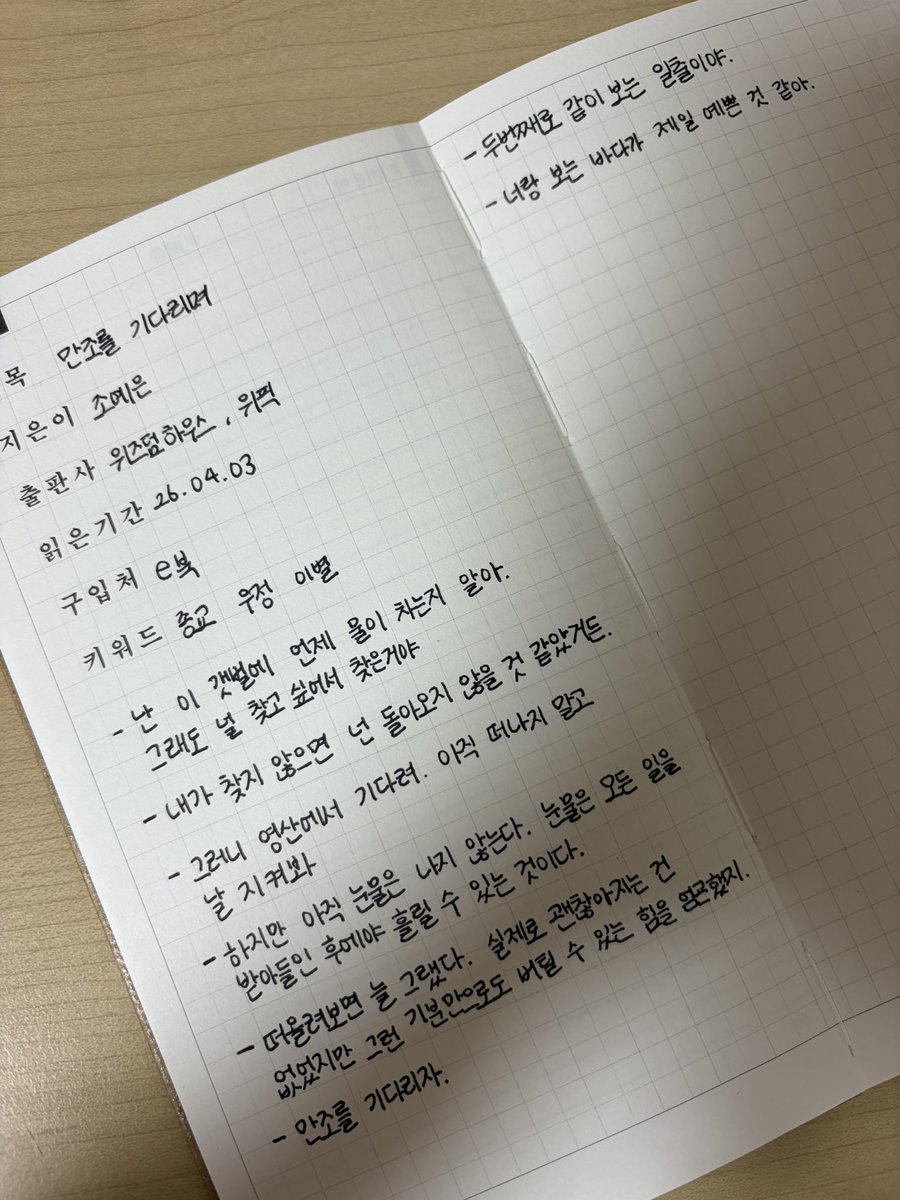 목 만조를 기다리며
지은이 조예은
출판사 위즈덤하우스, 위픽
읽은기간 26.04.03
구입처 e북
키워드 종교 우정 이별
- 난 이 갯벌에 언제 물이 차는지 알아.
그래도 널 찾고 싶어서 찾은거야
- 내가 찾지 않으면 넌 돌아오지 않을 것 같았거든.
- 그러니 영산에서 기다려. 아직 떠나지 말고
날 지켜봐
- 하지만 아직 눈물은 나지 않는다. 눈물은 모든 일을
받아들인 후에야 흘릴 수 있는 것이다.
- 떠올려보면 늘 그랬다. 실제로 괜찮아지는 건
없었지만 그런 기분만으로도 버틸 수 있는 힘을 얻곤했지.
- 만조를 기다리자.
- 두번째로 같이 보는 일출이야.
- 너랑 보는 바다가 제일 예쁜 것 같아.